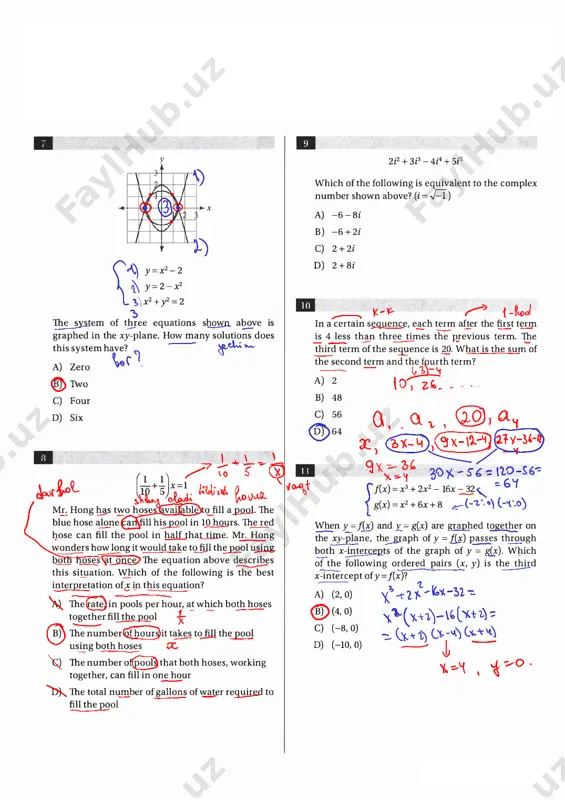 7
y
3
2
1
x
1 2 3
1)
3
2)
1) y = x² − 2
2) y = 2 − x²
3) x² + y² = 2
3
The system of three equations shown above is
graphed in the xy-plane. How many solutions does
this system have?
bor?
yechim
A) Zero
B) Two
C) Four
D) Six
8
(1/10 + 1/5)x = 1
1/10 + 1/5 = 1/x
vaqt
Mr. Hong has two hoses available to fill a pool. The
blue hose alone can fill his pool in 10 hours. The red
hose can fill the pool in half that time. Mr. Hong
wonders how long it would take to fill the pool using
both hoses at once. The equation above describes
this situation. Which of the following is the best
interpretation of x in this equation?
A) The rate, in pools per hour, at which both hoses
together fill the pool
1/x
B) The number of hours it takes to fill the pool
using both hoses
x
C) The number of pools that both hoses, working
together, can fill in one hour
D) The total number of gallons of water required to
fill the pool
9
2i² + 3i³ − 4i⁴ + 5i⁵
Which of the following is equivalent to the complex
number shown above? (i = √−1)
A) −6 − 8i
B) −6 + 2i
C) 2 + 2i
D) 2 + 8i
10
k-k
1-had
In a certain sequence, each term after the first term
is 4 less than three times the previous term. The
third term of the sequence is 20. What is the sum of
the second term and the fourth term?
(·3)-4
A) 2
10, 26 . . . . . .
B) 48
C) 56
a, a₂, 20, a₄
D) 64
x, 3x-4, 9x-12-4, 27x-36-
9x = 36
x = 4
30x - 56 = 120 - 56 =
= 64
11
f(x) = x³ + 2x² − 16x − 32
g(x) = x² + 6x + 8
(-2;0) (-4;0)
When y = f(x) and y = g(x) are graphed together on
the xy-plane, the graph of y = f(x) passes through
both x-intercepts of the graph of y = g(x). Which
of the following ordered pairs (x, y) is the third
x-intercept of y = f(x)?
A) (2, 0)
B) (4, 0)
C) (−8, 0)
D) (−10, 0)
x³ + 2x² - 16x - 32 =
x²(x+2) - 16(x+2) =
= (x+2)(x-4)(x+4)
x = 4, y = 0.
FaylHub.uz
FaylHub.uz
FaylHub.uz
FaylHub.uz